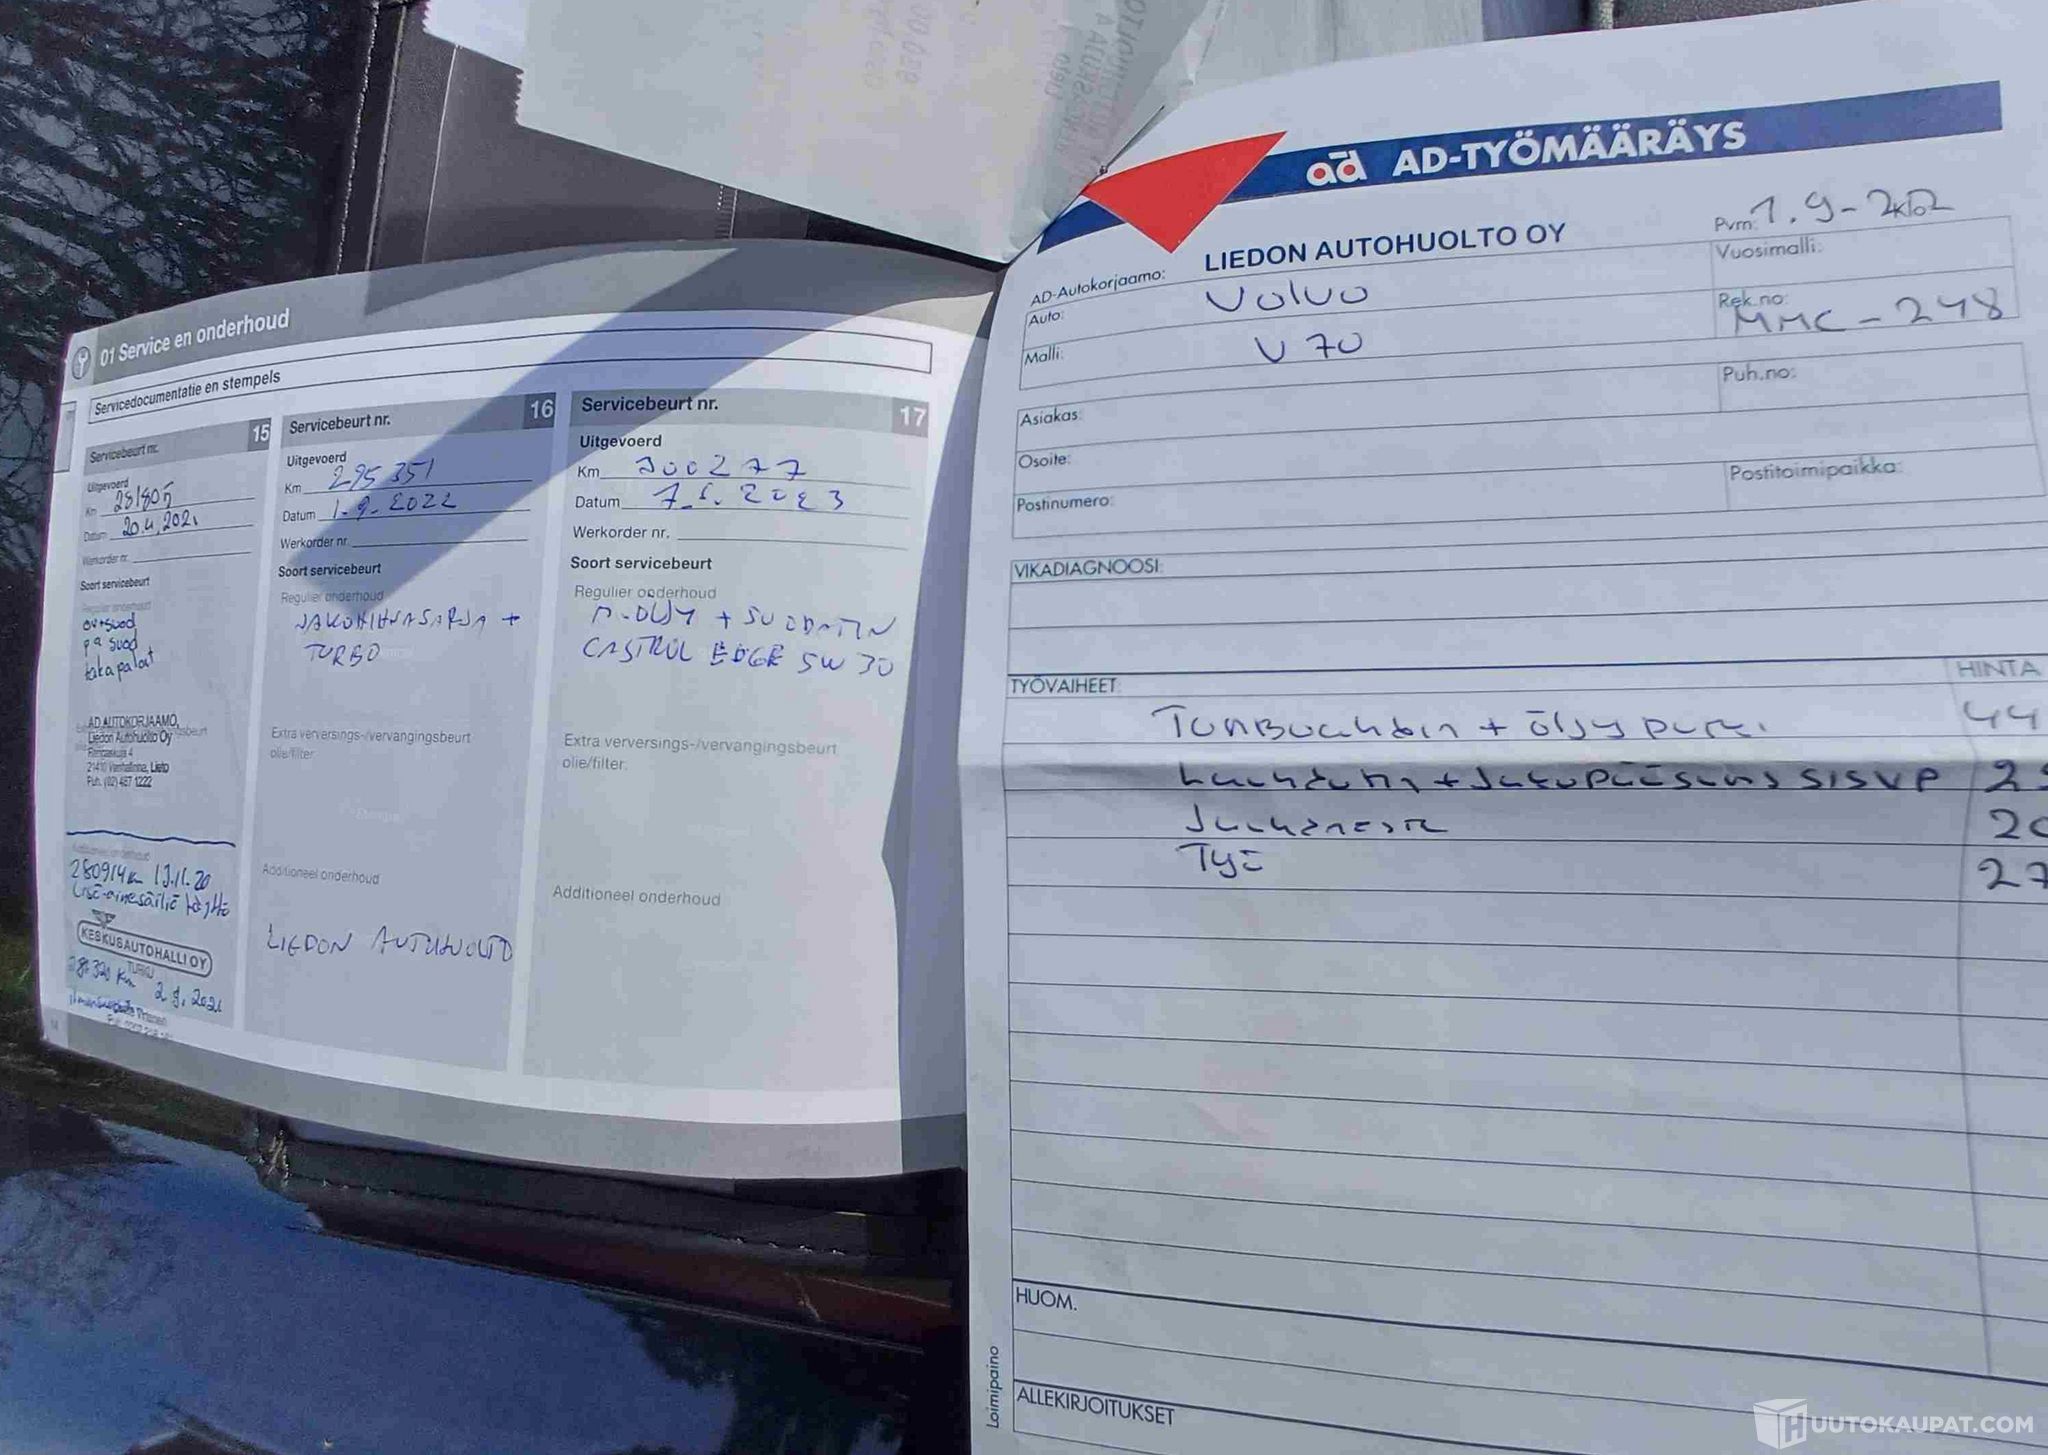 01 Service en onderhoud
Servicedocumentatie en stempels
Servicebeurt nr. 15
Uitgevoerd
Km 281805
Datum 20.4.2021
Werkorder nr.
Soort servicebeurt
Regulier onderhoud
suod
pa suod
takapalat
AD AUTOKORJAAMO,
Liedon Autohuolto Oy
21410 Vanhalinna, Lieto
Puh. (02) 487 1222
Additioneel onderhoud
280914 km 13.11.20
KESKUSAUTOHALLI OY
TURKU
km 2.9.2021
Servicebeurt nr. 16
Uitgevoerd
Km 295 351
Datum 1.9.2022
Werkorder nr.
Soort servicebeurt
Regulier onderhoud
JAKOHIHNASARJA +
TURBO
Extra verversings-/vervangingsbeurt
olie/filter:
Additioneel onderhoud
LIEDON AUTOHUOLTO
Servicebeurt nr. 17
Uitgevoerd
Km 300277
Datum 7.5.2023
Werkorder nr.
Soort servicebeurt
Regulier onderhoud
M.ÖLJY + SUODATIN
CASTROL EDGE 5W 30
Extra verversings-/vervangingsbeurt
olie/filter:
Additioneel onderhoud
ad AD-TYÖMÄÄRÄYS
Pvm: 1.9-2
AD-Autokorjaamo: LIEDON AUTOHUOLTO OY
Vuosimalli:
Auto: Volvo
Rek.no: MMC-248
Malli: V 70
Puh.no:
Asiakas:
Osoite:
Postinumero:
Postitoimipaikka:
VIKADIAGNOOSI:
TYÖVAIHEET: HINTA
+ öljy 44
+ 2
20
Työ 27
HUOM.
ALLEKIRJOITUKSET
Loimipaino
HUUTOKAUPAT.COM